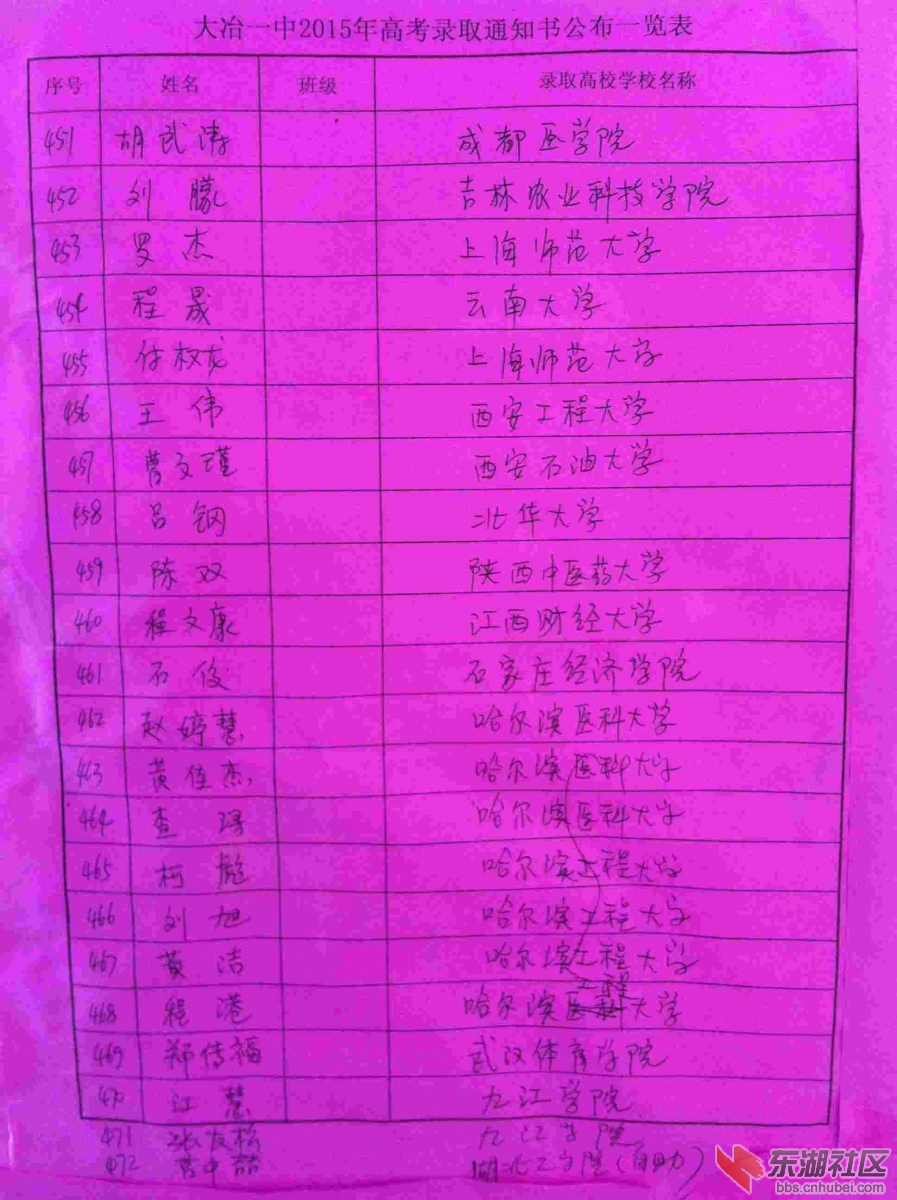 大冶一中2015年高考录取通知书公布一览表
序号 姓名 班级 录取高校学校名称
451 胡武涛 成都医学院
452 刘朦 吉林农业科技学院
453 罗杰 上海师范大学
454 程晟 云南大学
455 付权龙 上海师范大学
456 王伟 西安工程大学
457 曹文瑾 西安石油大学
458 吕钢 北华大学
459 陈双 陕西中医药大学
460 程文康 江西财经大学
461 石俊 石家庄经济学院
462 赵婷慧 哈尔滨医科大学
463 黄佳杰 哈尔滨医科大学
464 查 哈尔滨医科大学
465 柯彪 哈尔滨工程大学
466 刘旭 哈尔滨工程大学
467 黄洁 哈尔滨工程大学
468 程港 哈尔滨工程大学
469 郑传福 武汉体育学院
470 江慧 九江学院
471 张友松 九江学院
472 湖北工学院(自助)
东湖社区
bbs.cnhubei.com